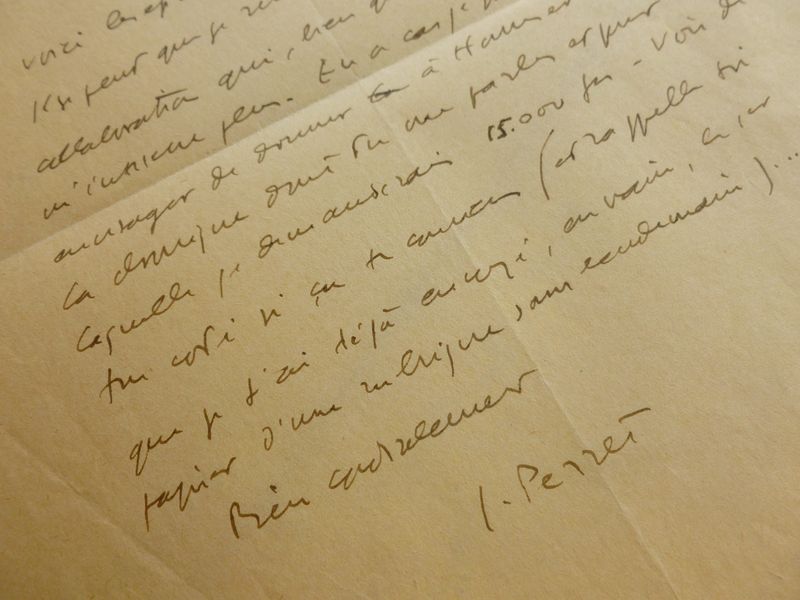 voici les
Il se peut que je
collaboration qui, bien
m'intéresse plus. En ce cas je
envisager de donner à
la chronique dont tu me parles et pour
laquelle je demanderais 15.000 frs - Vois de
ton côté si ça te convient (et rappelle toi
que je t'ai déjà envoyé, en vain, un 1er
papier d'une rubrique sans lendemain)...
Bien cordialement
J. Perret